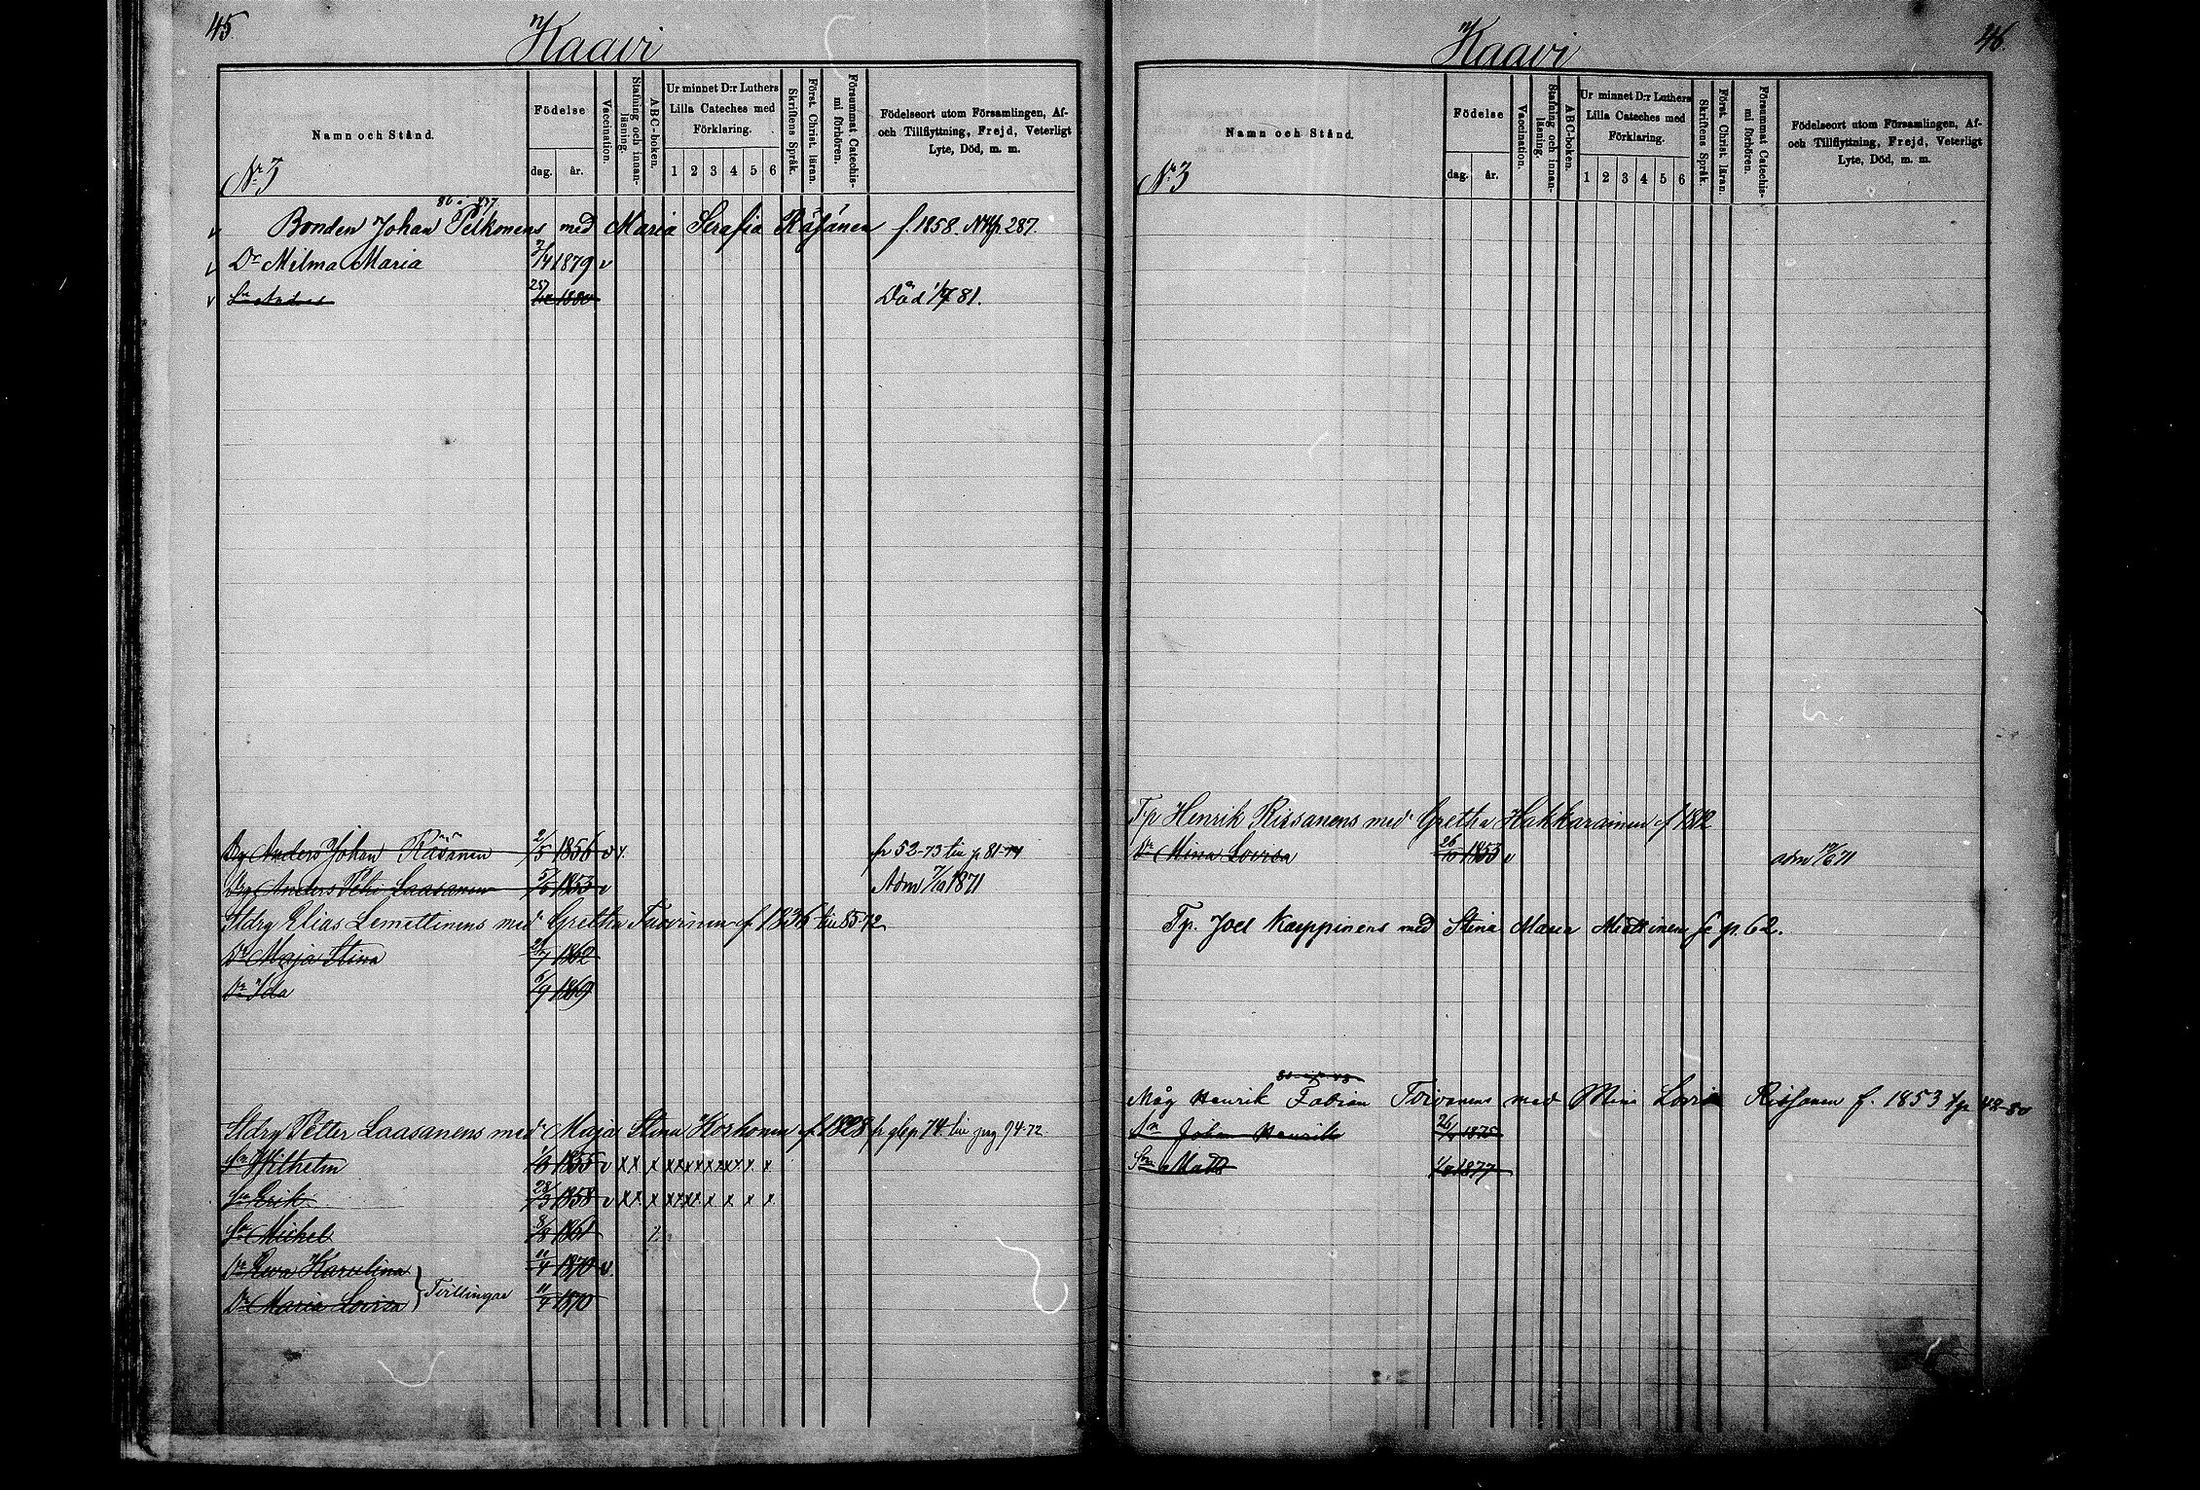 45
Kaavi
Namn och Stånd.
Födelse
dag.
år.
Vaccination.
Stafning och innanläsning.
ABC-boken.
Ur minnet D:r Luthers Lilla Cateches med Förklaring.
1 2 3 4 5 6
Skriftens Språk.
Först. Christ. läran.
Försummat Catechismi förhören.
Födelseort utom Församlingen, Af- och Tillflyttning, Frejd, Veterligt Lyte, Död, m. m.
Nr 3
Bonden Johan Pelkonens med Maria Serafia Räsänen f. 1858.
Dr Milma Maria 1879 v
Sn Anders 1880 Död 81.
Dg Anders Johan Räsänen 2/5 1856 v
Dg Anders Laasanen 1853 v Adm 1871
Stdrg Elias Lemettinens med Gretha Tuovinen f. 1836
Dr Maja Stina 1862
Dr Ida 1869
Stdrg Petter Laasanens med Maja Stina Korhonen f. 1828
Sn Wilhelm 1855 v x x x x x x x x x x x x
Sn Erik 1858 v x x x x x x x x x x x
Sn Michel 1861
Dr Ewa Karolina 11/4 1870 v.
Dr Maria Lovisa Tvillingar 11/4 1870
46.
Kaavi
Namn och Stånd.
Födelse
dag.
år.
Vaccination.
Stafning och innanläsning.
ABC-boken.
Ur minnet D:r Luthers Lilla Cateches med Förklaring.
1 2 3 4 5 6
Skriftens Språk.
Först. Christ. läran.
Försummat Catechismi förhören.
Födelseort utom Församlingen, Af- och Tillflyttning, Frejd, Veterligt Lyte, Död, m. m.
Nr 3
Tp Henrik Rissanens med Gretha Hakkarainen f.
Dr Mina Lovisa 1853 v adm 71
Tp. Joel Kauppinens med Stina Maria p. 62.
Måg Henrik Fabian Toivanens med Mina Lovisa Rissanen f. 1853
Sn Johan Henrik 1875
Sn Matts 1877